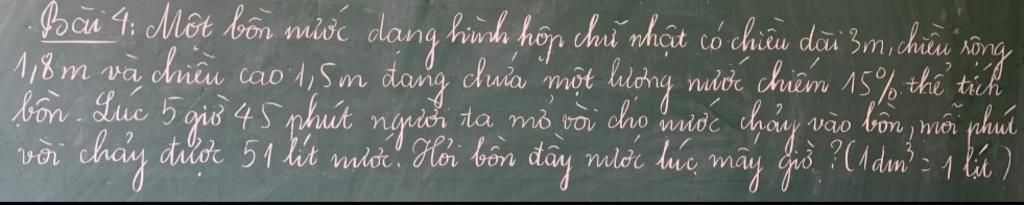 Bài 4: Một bồn nước dạng hình hộp chữ nhật có chiều dài 3m, chiều rộng
1,8m và chiều cao 1,5m đang chứa một lượng nước chiếm 15% thể tích
bồn. Lúc 5 giờ 45 phút người ta mở vòi cho nước chảy vào bồn, mỗi phút
vòi chảy được 51 lít nước. Hỏi bồn đầy nước lúc mấy giờ? (1dm³ = 1 lít)